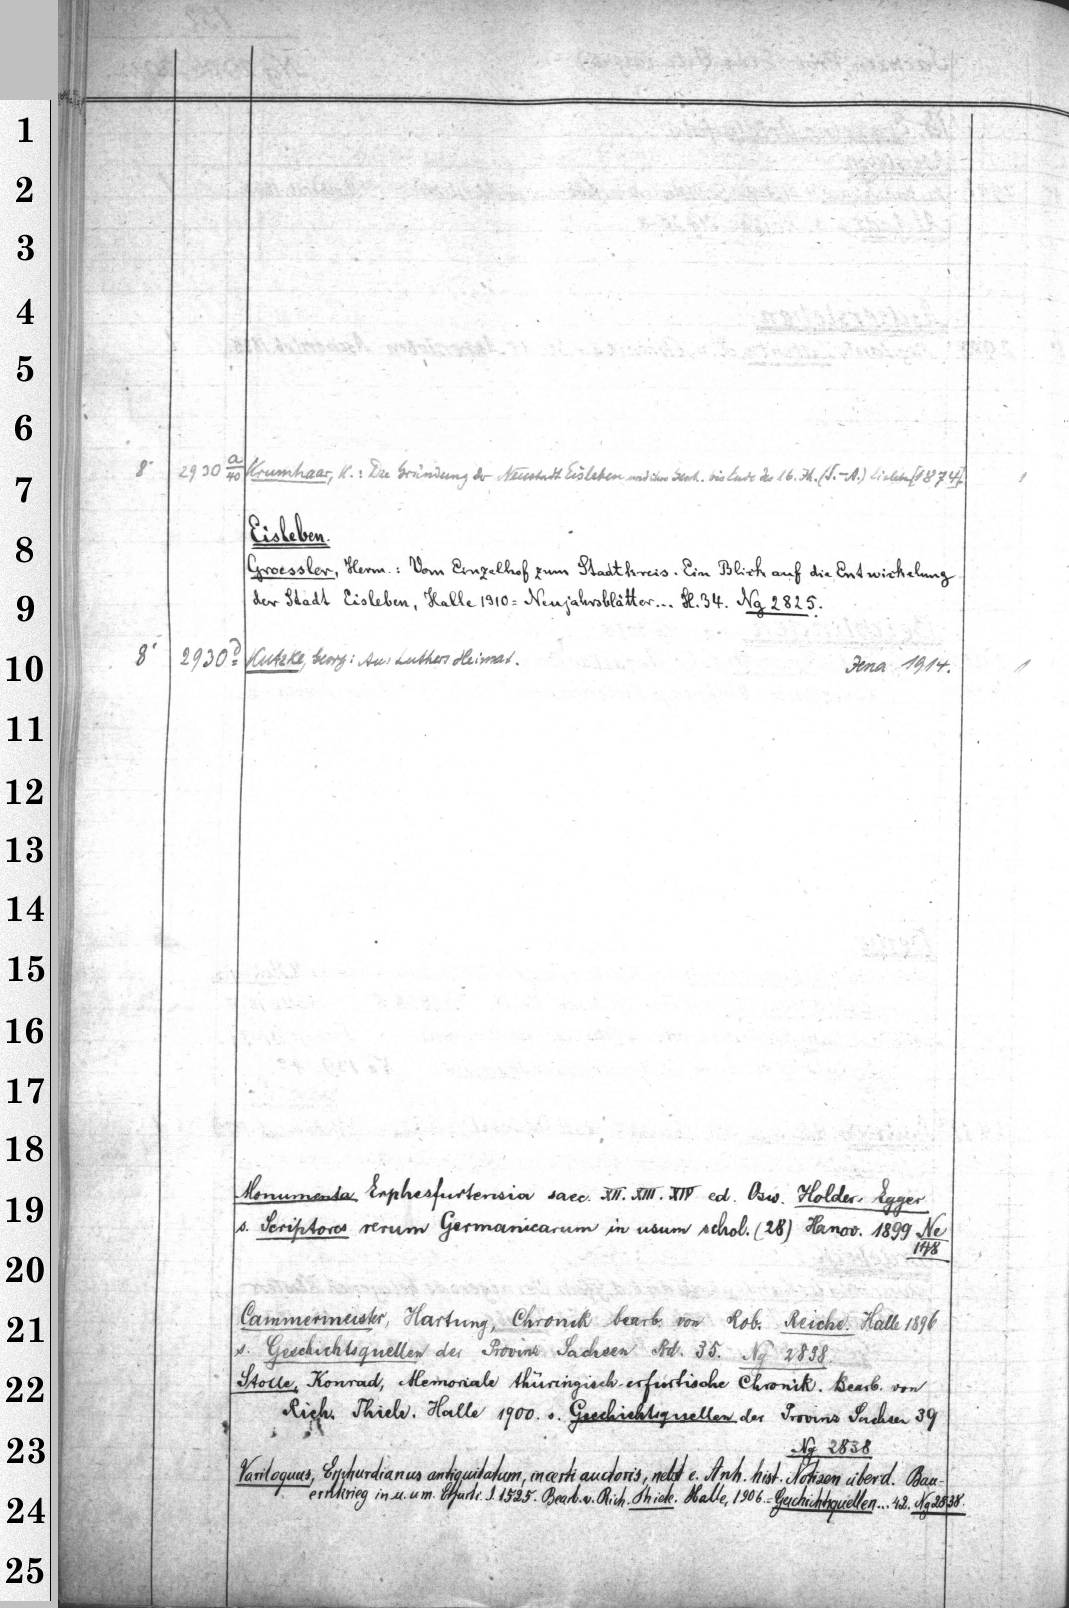 8° 2930 a/40 Krumhaar, K.: Die Gründung der Neustadt Eisleben und ihre Gesch. bis Ende des 16. Jh. (S.-A.) Eisleben [1874]. 1
Eisleben.
Groessler, Herm.: Vom Einzelhof zum Stadtkreis. Ein Blick auf die Entwickelung
der Stadt Eisleben, Halle 1910 = Neujahrsblätter... H. 34. Ng 2825.
8° 2930 d Kutzke, Georg: Aus Luthers Heimat. Jena 1914. 1
Monumenta Erphesfurtensia saec. XII. XIII. XIV ed. Osw. Holder-Egger
s. Scriptores rerum Germanicarum in usum schol. (28) Hanov. 1899 Ne
148
Cammermeister, Hartung, Chronik bearb. von Rob. Reiche. Halle 1896
s. Geschichtsquellen der Provinz Sachsen Bd. 35. Ng 2838.
Stolle, Konrad, Memoriale thüringisch-erfurtische Chronik. Bearb. von
Rich. Thiele. Halle 1900. s. Geschichtsquellen der Provinz Sachsen 39
Ng 2838
Variloquus, Erphurdianus antiquitatum, incerti auctoris, nebst e. Anh. hist. Notizen über d. Bau-
ernkrieg in u. um Erfurt i. J. 1525. Bearb. v. Rich. Thiele. Halle, 1906. = Geschichtsquellen... 42. Ng 2838.
1
2
3
4
5
6
7
8
9
10
11
12
13
14
15
16
17
18
19
20
21
22
23
24
25